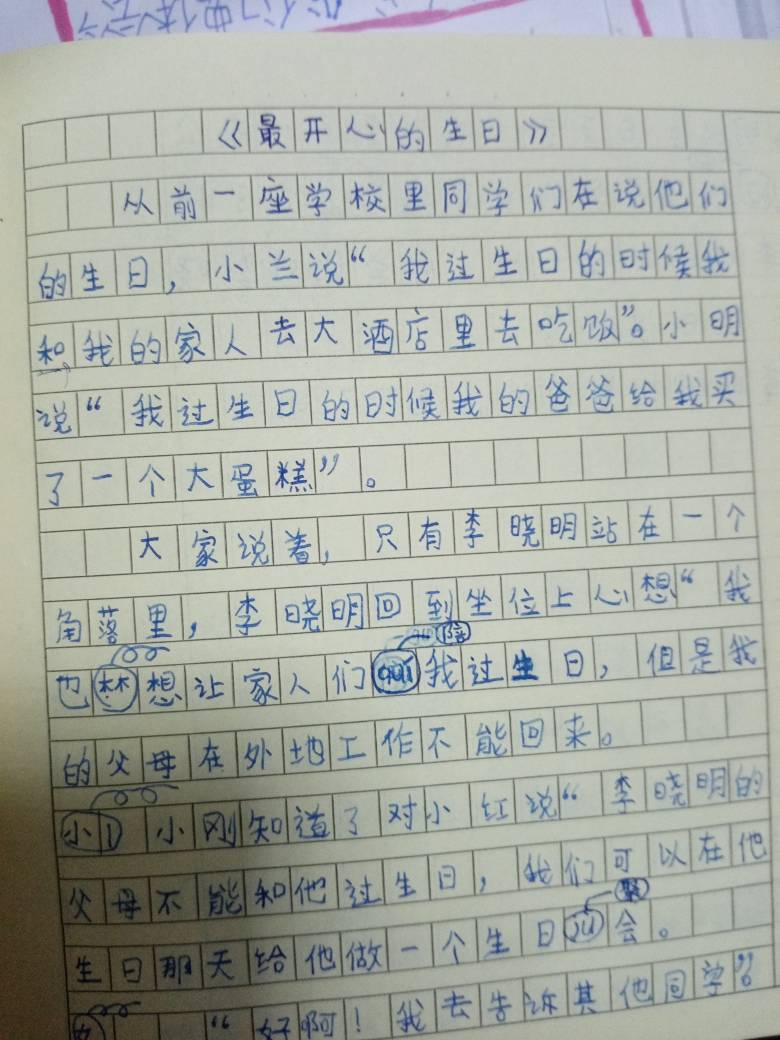 《最开心的生日》
从前一座学校里同学们在说他们
的生日,小兰说“我过生日的时候我
和我的家人去大酒店里去吃饭”。小明
说“我过生日的时候我的爸爸给我买
了一个大蛋糕”。
大家说着,只有李晓明站在一个
角落里,李晓明回到坐位上心想“我
也想让家人们陪我过生日,但是我
的父母在外地工作不能回来。
小刚知道了对小红说“李晓明的
父母不能和他过生日,我们可以在他
生日那天给他做一个生日聚会。
“好啊!我去告诉其他同学”。